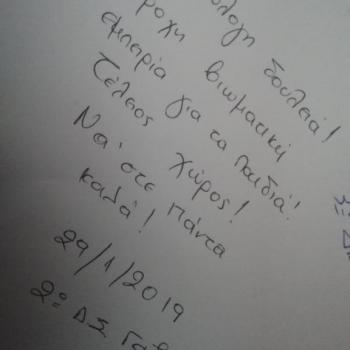 δουλειά!
βιωματική
εμπειρία για τα παιδιά!
Τέλειος χώρος!
Να 'στε πάντα
καλά!
29/1/2019
2ο ΔΣ